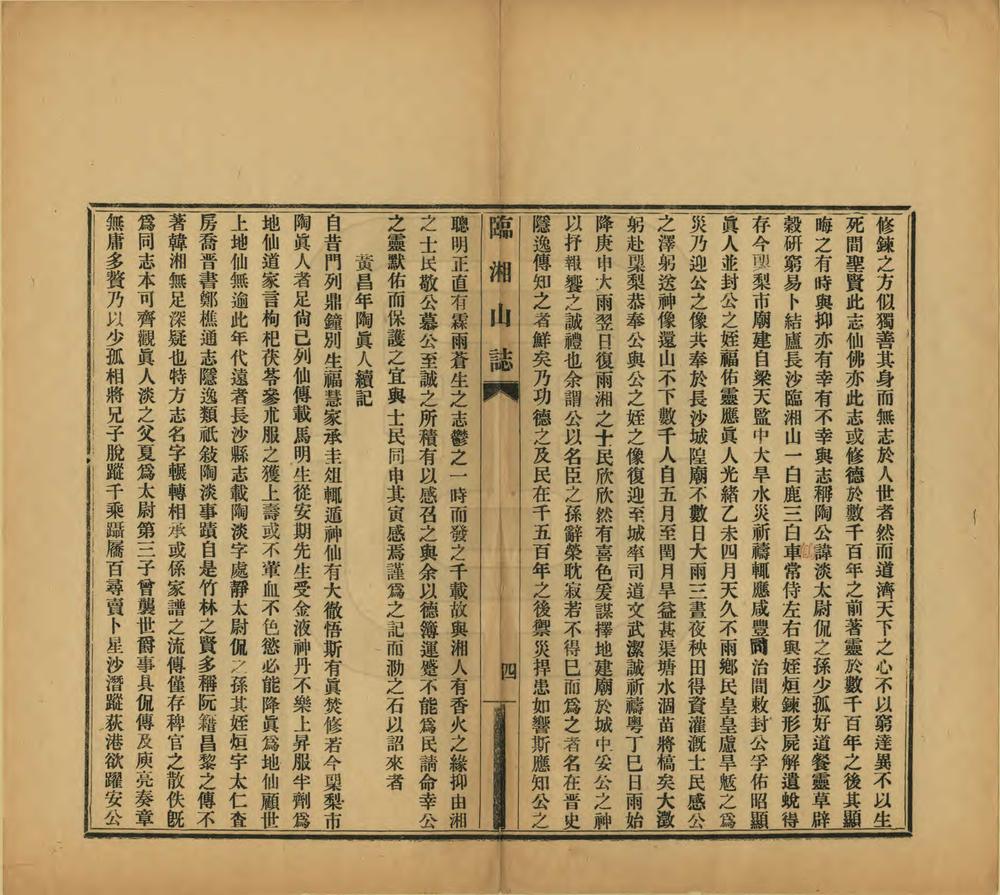 修鍊之方似獨善其身而無志於人世者然而道濟天下之心不以窮達異不以生
死間聖賢此志仙佛亦此志或修德於數千百年之前著靈於數千百年之後其顯
晦之有時與抑亦有幸有不幸與志稱陶公諱淡太尉侃之孫少孤好道餐靈草辟
穀研窮易卜結廬長沙臨湘山一白鹿三白車常侍左右與姪烜鍊形屍解遺蛻得
存今㮚梨市廟建自梁天監中大旱水災祈禱輒應咸豐同治間敕封公孚佑昭顯
眞人並封公之姪福佑靈應眞人光緒乙未四月天久不雨鄉民皇皇慮旱魃之爲
災乃迎公之像共奉於長沙城隍廟不數日大雨三晝夜秧田得資灌漑士民感公
之澤躬送神像還山不下數千人自五月至閏月旱益甚渠塘水涸苗將槁矣大澂
躬赴㮚梨恭奉公與公之姪之像復迎至城率司道文武潔誠祈禱粵丁巳日雨始
降庚申大雨翌日復雨湘之士民欣欣然有喜色爰謀擇地建廟於城中妥公之神
以抒報饗之誠禮也余謂公以名臣之孫辭榮耽寂若不得已而爲之者名在晋史
隱逸傳知之者鮮矣乃功德之及民在千五百年之後禦災捍患如響斯應知公之
臨湘山誌
四
聰明正直有霖雨蒼生之志鬱之一時而發之千載故與湘人有香火之緣抑由湘
之士民敬公慕公至誠之所積有以感召之與余以德簿運蹇不能爲民請命幸公
之靈默佑而保護之宜與士民同申其寅感焉謹爲之記而泐之石以詔來者
黃昌年陶眞人續記
自昔門列鼎鐘別生福慧家承圭俎輒遁神仙有大徹悟斯有眞焚修若今㮚梨市
陶眞人者足尙已列仙傳載馬明生從安期先生受金液神丹不樂上昇服半劑爲
地仙道家言枸杞茯苓蔘朮服之獲上壽或不葷血不色慾必能降眞爲地仙顧世
上地仙無逾此年代遠者長沙縣志載陶淡字處靜太尉侃之孫其姪烜字太仁查
房喬晋書鄭樵通志隱逸類祇敍陶淡事蹟自是竹林之賢多稱阮籍昌黎之傳不
著韓湘無足深疑也特方志名字輾轉相承或係家譜之流傳僅存稗官之散佚旣
爲同志本可齊觀眞人淡之父夏爲太尉第三子曾襲世爵事具侃傳及庾亮奏章
無庸多贅乃以少孤相將兄子脫蹤千乘躡屩百尋賣卜星沙潛蹤荻港欲躍安公